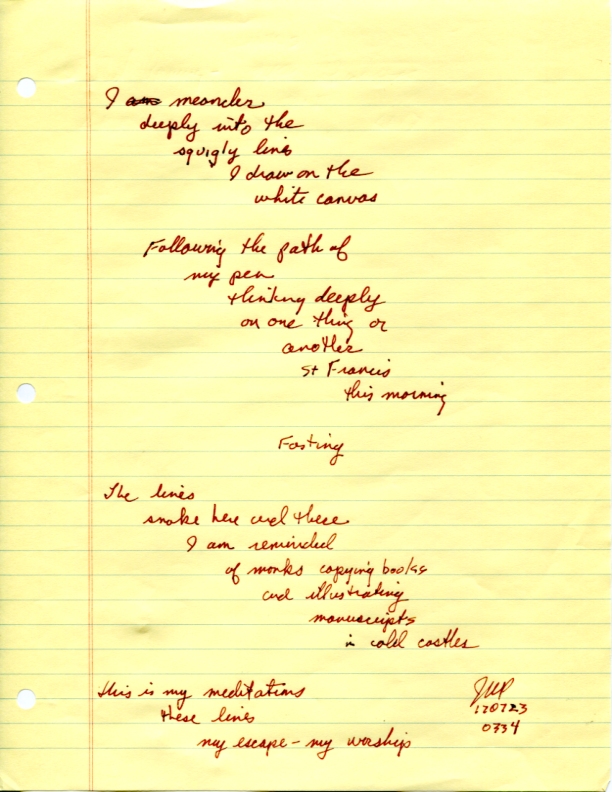 I am meander
deeply into the
squigly lines
I draw on the
white canvas
Following the path of
my pen
thinking deeply
on one thing or
another
St Francis
this morning
Fasting
The lines
snake here and there
I am reminded
of monks copying books
and illustrating
manuscripts
in cold castles
this is my meditations
these lines
my escape - my worship
170723
0334